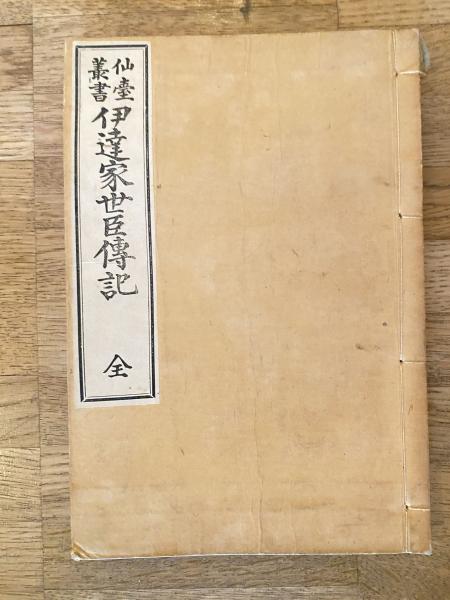 仙臺
叢書
伊達家世臣傳記
全